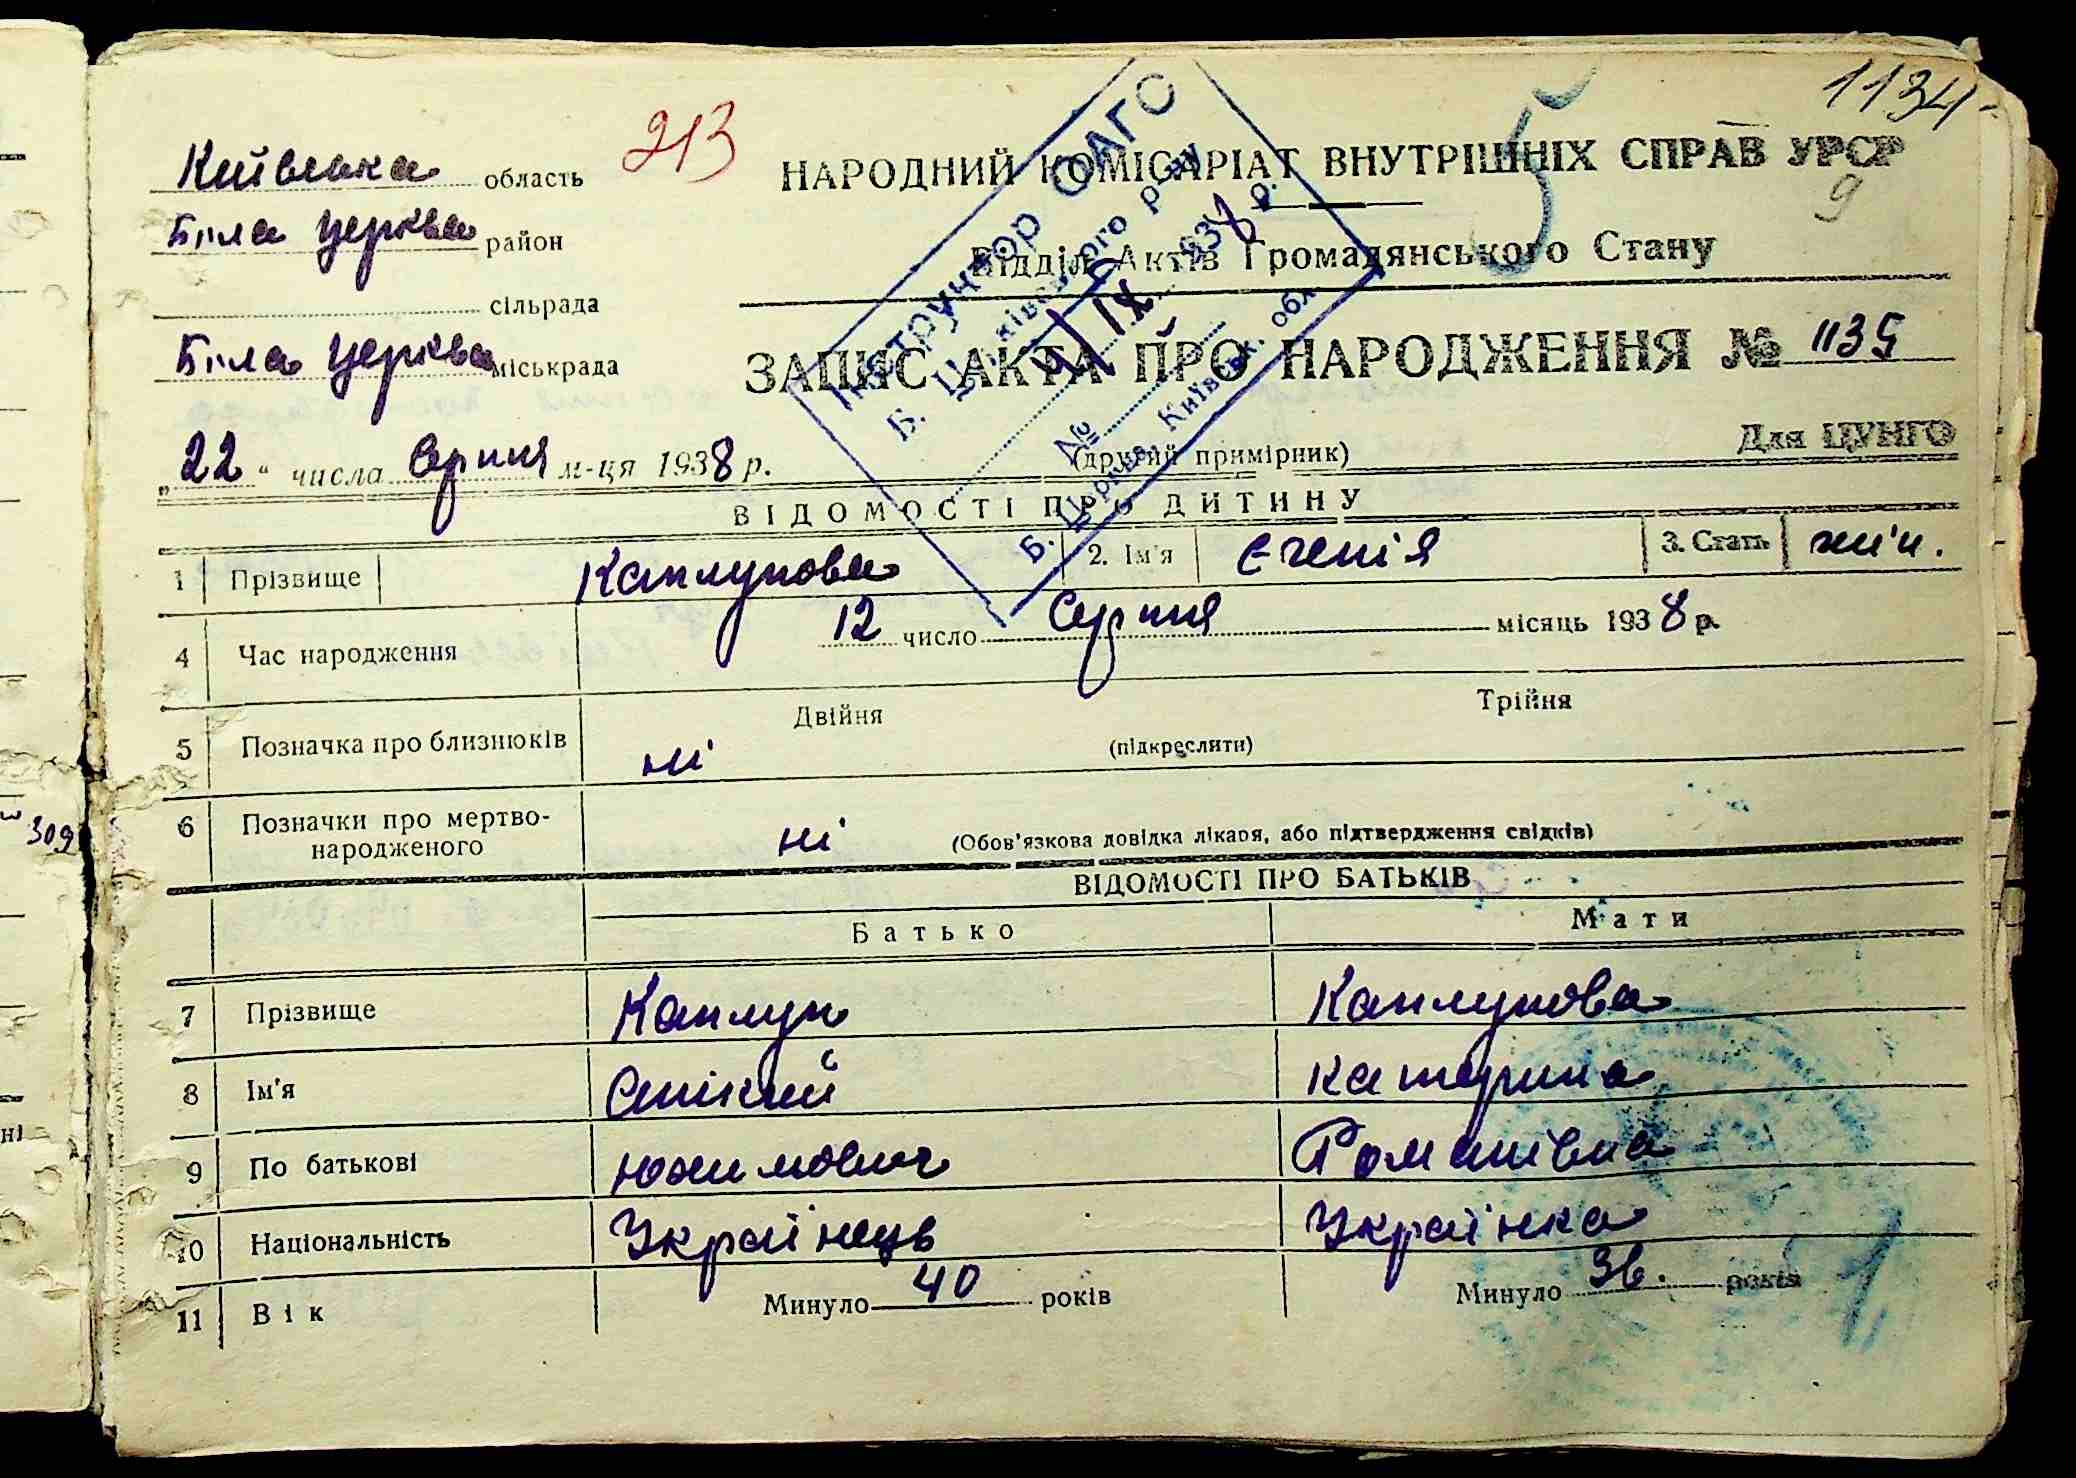 1134
213
5
9
Київська область
Біла Церква район
сільрада
Біла Церква міськрада
„22“ числа Серпня м-ця 1938 р.
НАРОДНИЙ КОМІСАРІАТ ВНУТРІШНІХ СПРАВ УРСР
Відділ Актів Громадянського Стану
ЗАПИС АКТА ПРО НАРОДЖЕННЯ № 1135
(другий примірник)
Для ЦУНГО
Інструктор ОАГС
Б. Церківського р-ну
IX 1938 р.
№
Б. Церква, Київськ. обл.
ВІДОМОСТІ ПРО ДИТИНУ
1 Прізвище Каплунова 2. Ім'я Єгенія 3. Стать жін.
4 Час народження 12 число Серпня місяць 1938 р.
5 Позначка про близнюків ні Двійня (підкреслити) Трійня
6 Позначки про мертво-
народженого ні (Обов'язкова довідка лікаря, або підтвердження свідків)
ВІДОМОСТІ ПРО БАТЬКІВ
Батько Мати
7 Прізвище Каплун Каплунова
8 Ім'я Катерина
9 По батькові Юхимович Романівна
10 Національність Українець Українка
11 Вік Минуло 40 років Минуло 36. років
309
ні